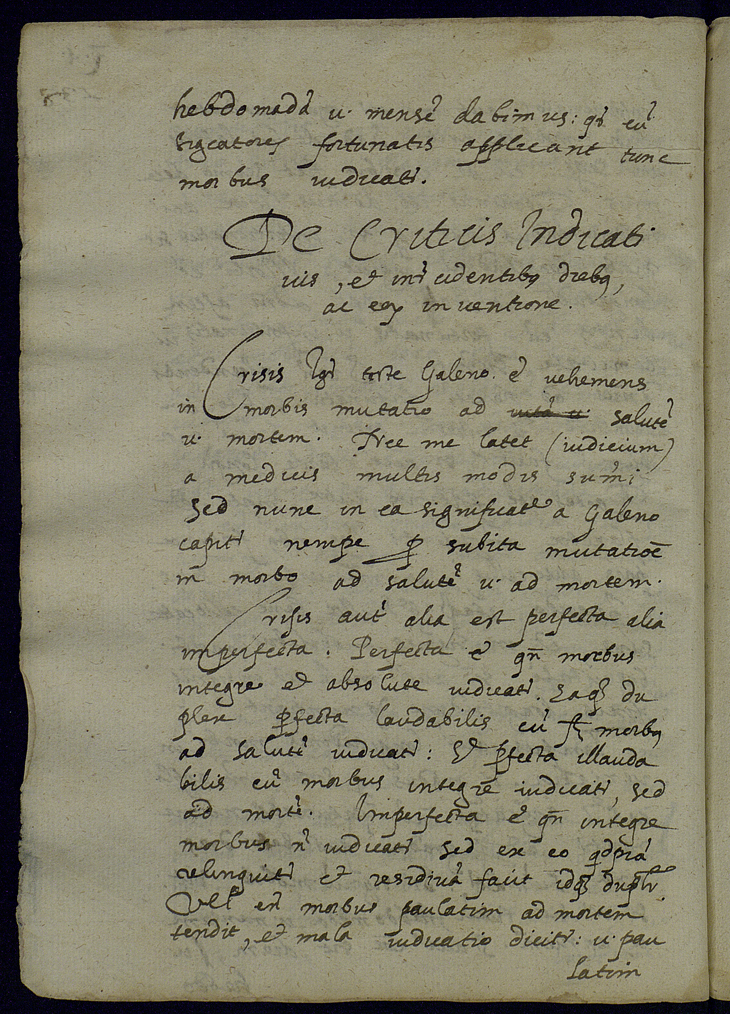 hebdomadā u. mensē dabimus: qn̄ cū
sigcatores fortunatis applicant tunc
morbus iudicat̄.
De Criticis Indicati
uis, et int̄cidentibq diebq,
ac eoꝝ inuentione.
Crisis Igr̄ teste Galeno. ē vehemens
in morbis mutatio ad salutē
u. mortem. Nec me latet (iudicium)
a medicis multis modis sumi
Sed nunc in ea significatōe a Galeno
capit̄ nempe ꝓ subita mutatioē
in morbo ad salutē u. ad mortem.
Crisis aut̄ alia est perfecta alia
imperfecta. Perfecta ē qn̄ morbus
integre et absolute iudicat̄. Eaqꝫ du
plex ꝑfecta laudabilis cū morbq
ad salutē iudicat̄: Et ꝑfecta illauda
bilis cū morbus integre iudicat̄, sed
ad mortē. Imperfecta ē qn̄ integre
morbus n̄ iudicat̄ sed ex eo
relinquit̄ et residiuā facit idqꝫ duplr̄
Vel en̄ morbus paulatim ad mortem
tendit, et mala iudicatio dicit̄: u. pau
latim